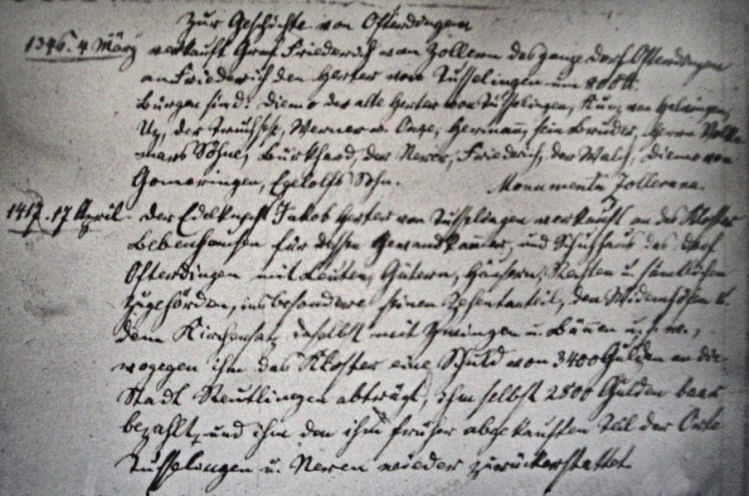 Zur Geschichte von Ofterdingen
1346. 4 März verkauft Graf Friederich von Zollern das ganze Dorf Ofterdingen
an Friederich den Herter von Tusslingen um 800 ℔.
Bürgen sind: Diemo der alte Herter von Tusslingen, Kunz von
Utz, der Truchsess, Werner u. Hermann, sein Bruder, Herrn Volk-
mars Söhne, Burkhard, der Nerer, Friederich, der Walch, Diemo von
Gomaringen, Egelolfs Sohn. Monumenta Zollerana.
1417. 17 April. Der Edelknecht Jakob Herter von Tusslingen verkauft an das Kloster
Bebenhausen für dessen Gewandkammer, und Schuhhaus das Dorf
Ofterdingen mit Leuten, Gütern, Häusern, Rechten u. sämtlichen
Zugehörden, insbesondere seinen Zehentanteil, den Widemhöfen u.
dem Kirchensatz daselbst mit Zwingen u. Bännen u. s. w.,
wogegen ihm das Kloster eine Schuld von 3400 Gulden an die
Stadt Reutlingen abträgt, ihm selbst 2800 Gulden baar
bezahlt, und ihm den ihm früher abgekauften Teil der Orte
Tusslingen u. Neren wieder zurückerstattet